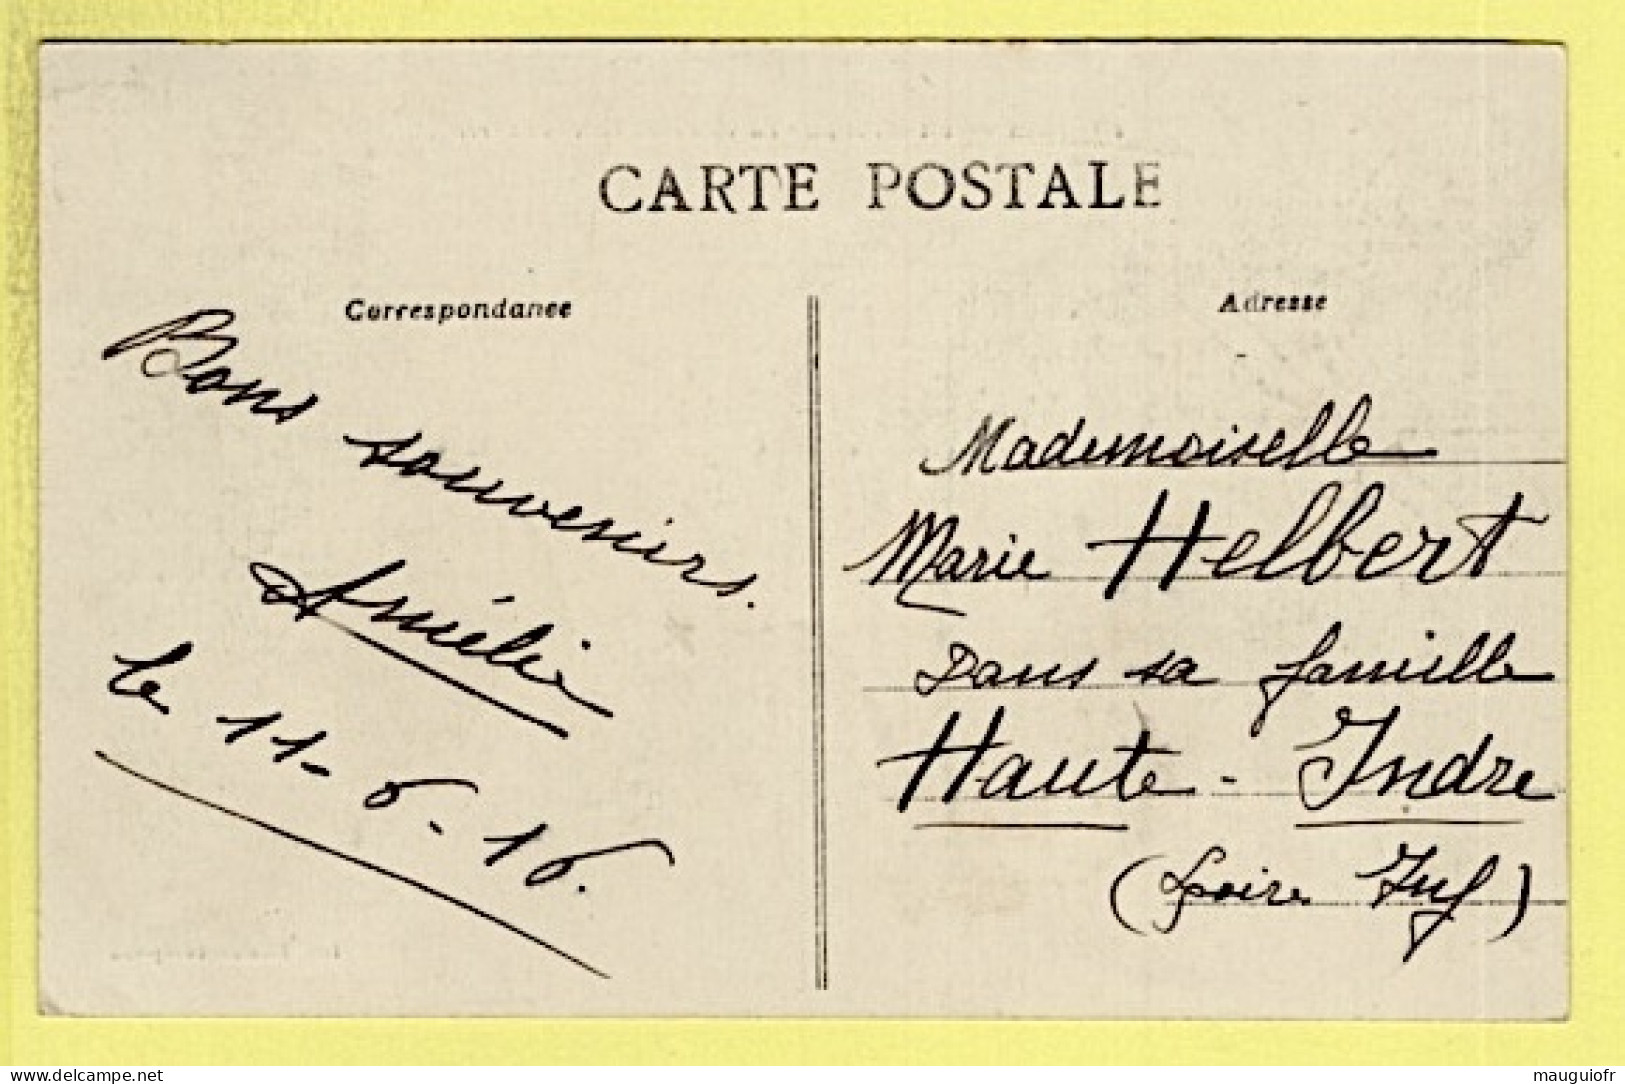 CARTE POSTALE
Correspondance
Bons souvenirs.
Amélie
le 11-6-16.
Adresse
Mademoiselle
Marie Helbert
Dans sa famille
Haute-Indre
(Loire Inf)
delcampe.net
mauguiofr